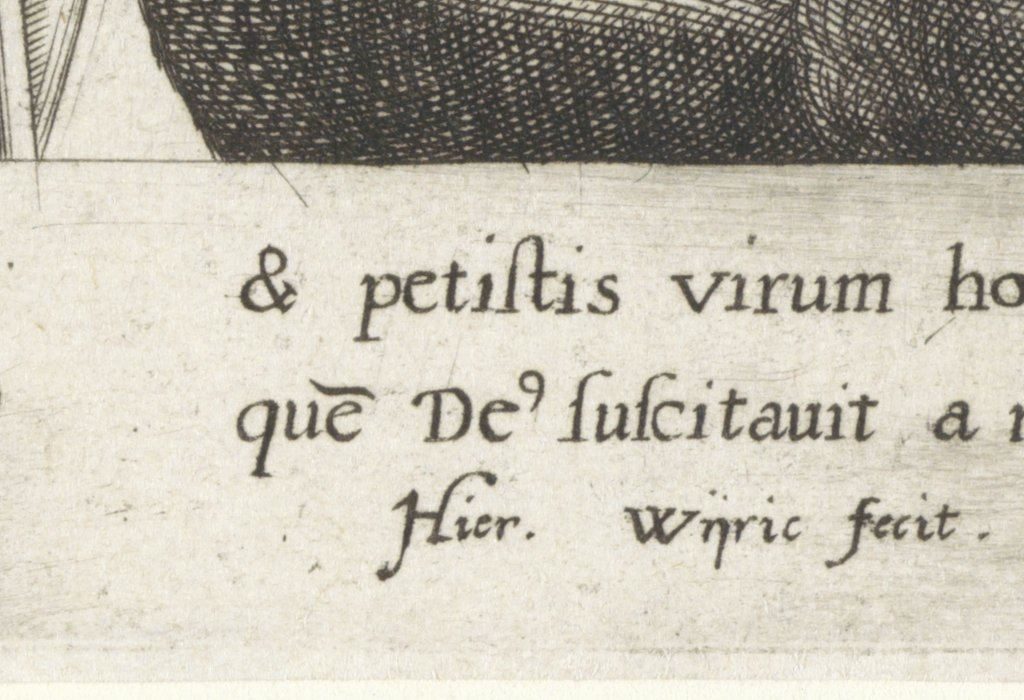 & petiſtis virum ho
quē Deꝰ ſuſcitauit a
Hier. Wijric fecit.